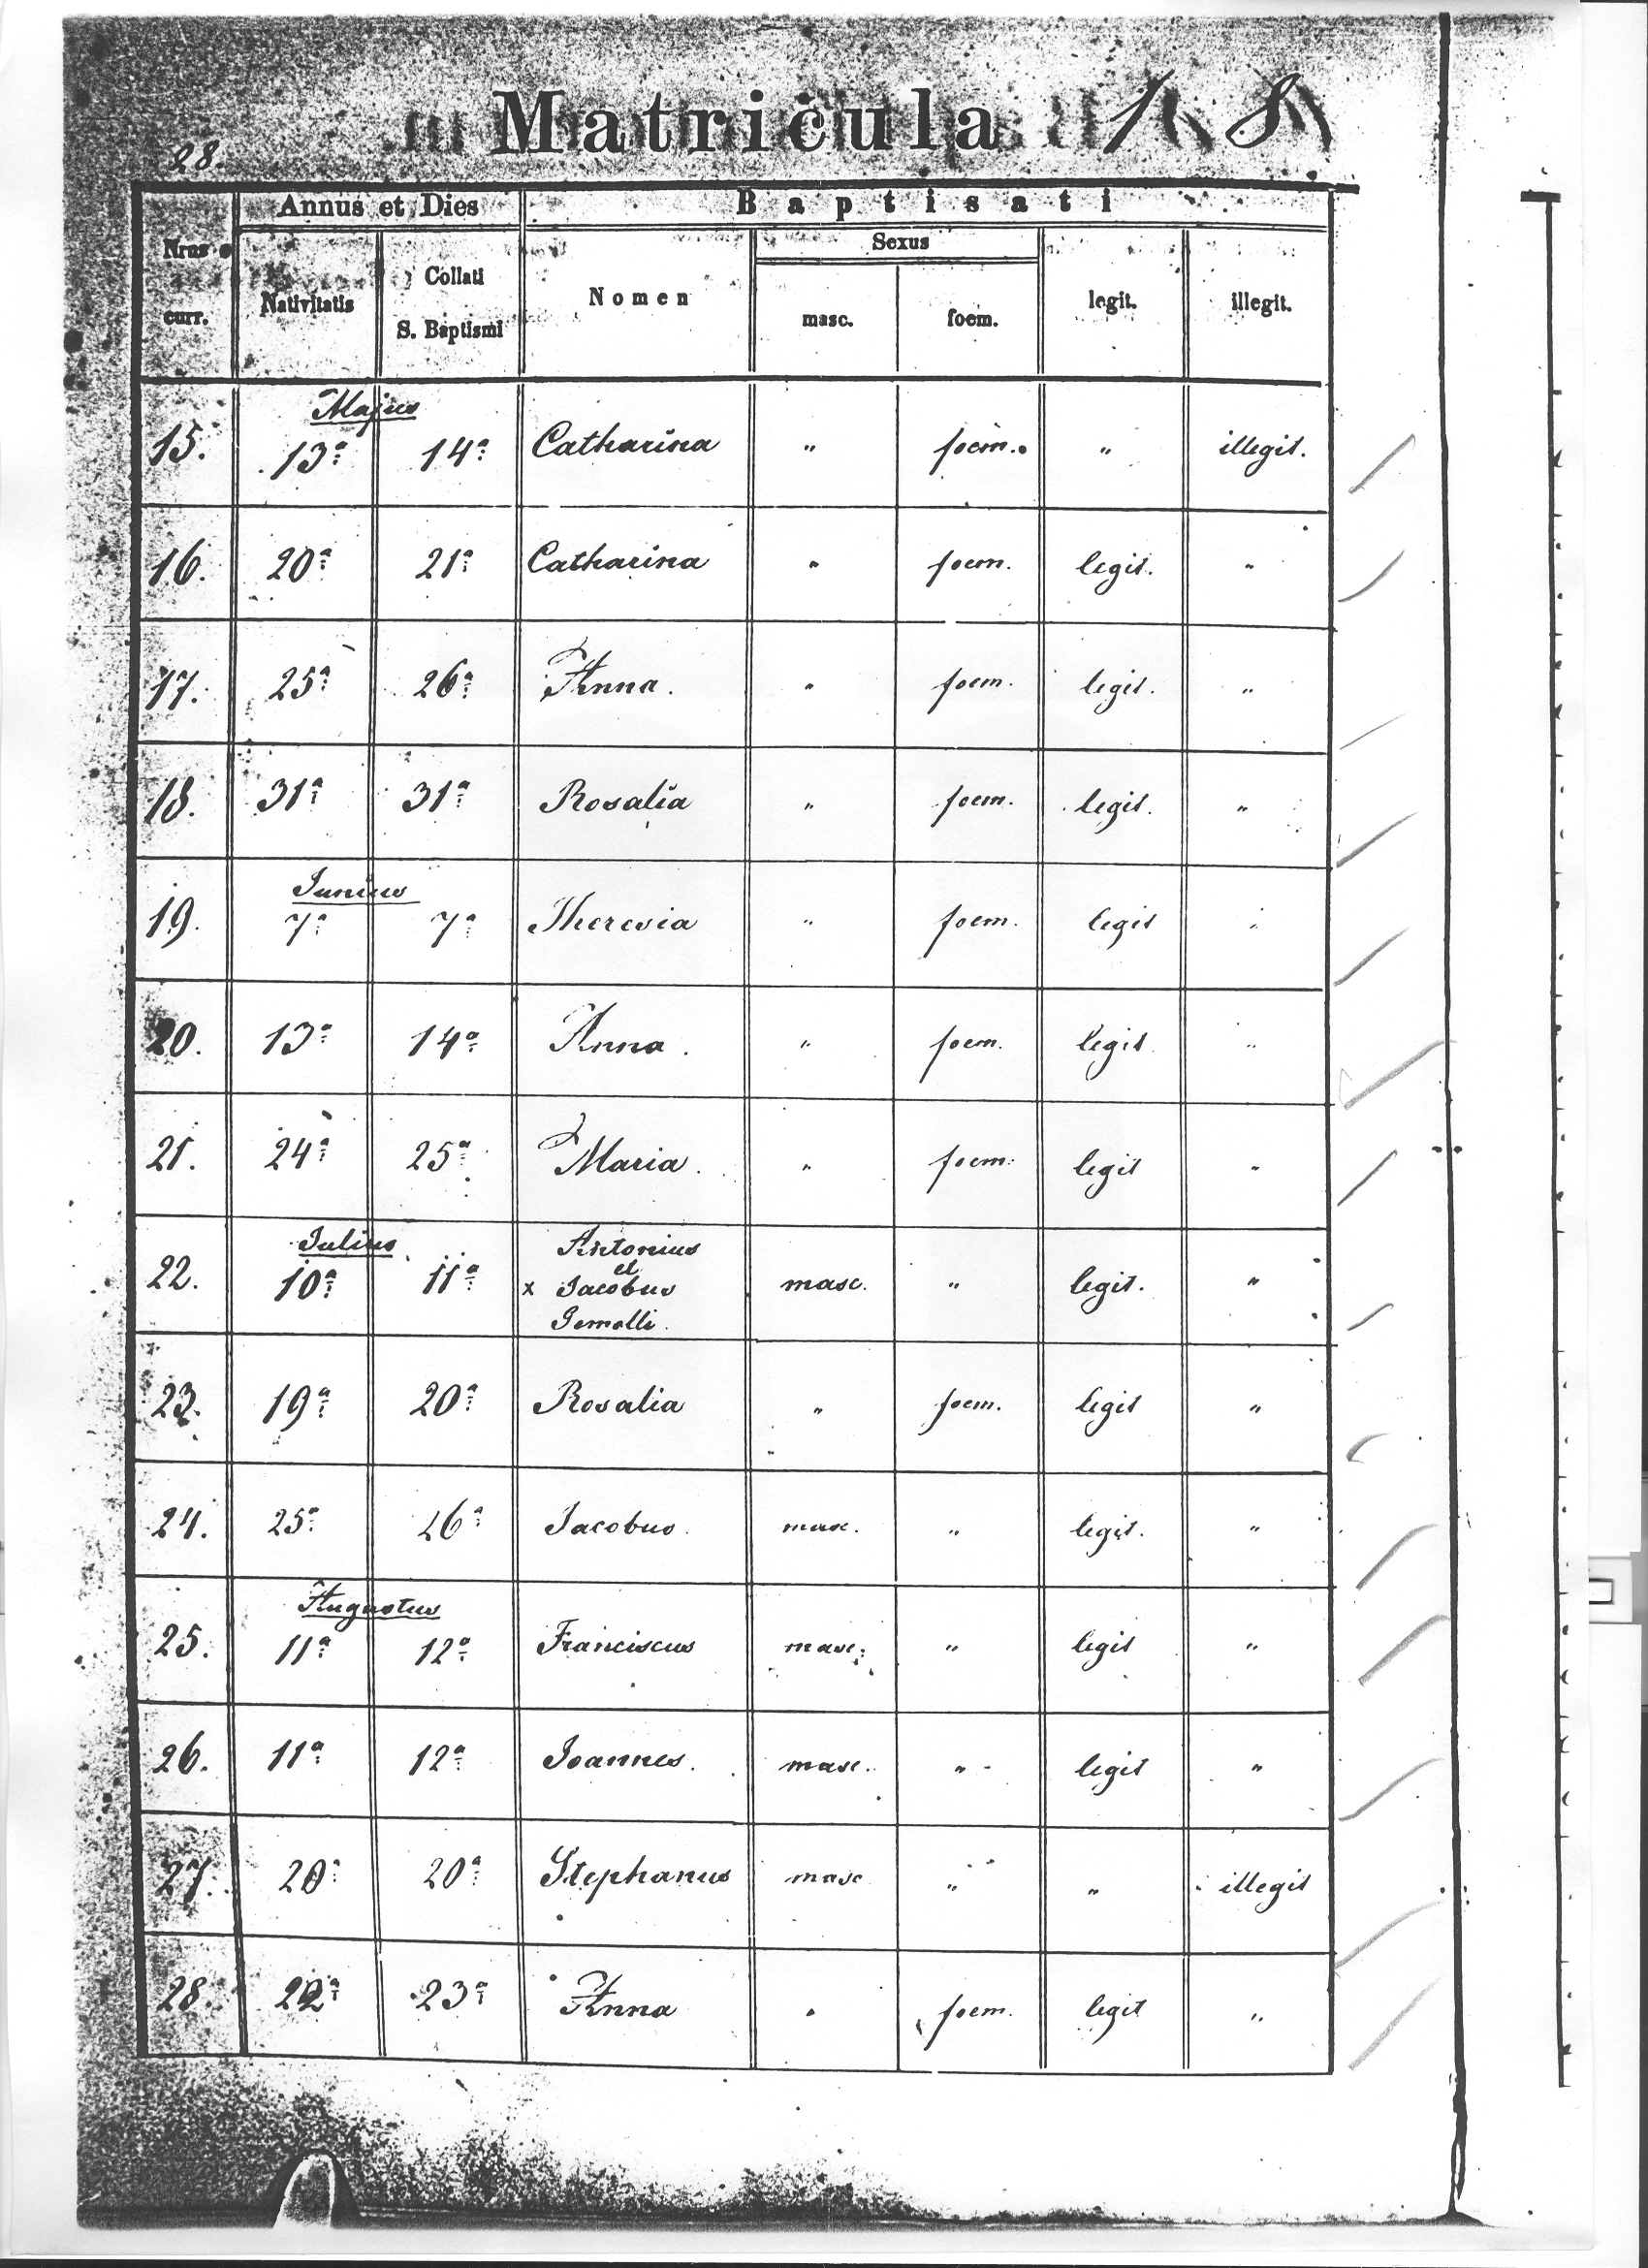 28. Matricula 18
Annus et Dies Baptisati
Nrus curr. Nativitatis Collati S. Baptismi Nomen Sexus masc. foem. legit. illegit.
Majus
15. 13ª 14ª Catharina " foem. " illegit.
16. 20ª 21ª Catharina " foem. legit. "
17. 25ª 26ª Anna. " foem. legit. "
18. 31ª 31ª Rosalia " foem. legit. "
Junius
19. 7ª 7ª Theresia " foem. legit "
20. 13ª 14ª Anna. " foem. legit "
21. 24ª 25ª Maria. " foem. legit "
Julius
22. 10ª 11ª Antonius et x Jacobus Gemelli. masc. " legit. "
23. 19ª 20ª Rosalia " foem. legit "
24. 25ª 26ª Jacobus. masc. " legit. "
Augustus
25. 11ª 12ª Franciscus masc. " legit "
26. 11ª 12ª Joannes. masc. " legit "
27. 20ª 20ª Stephanus masc " " illegit
28. 22ª 23ª Anna " foem. legit "